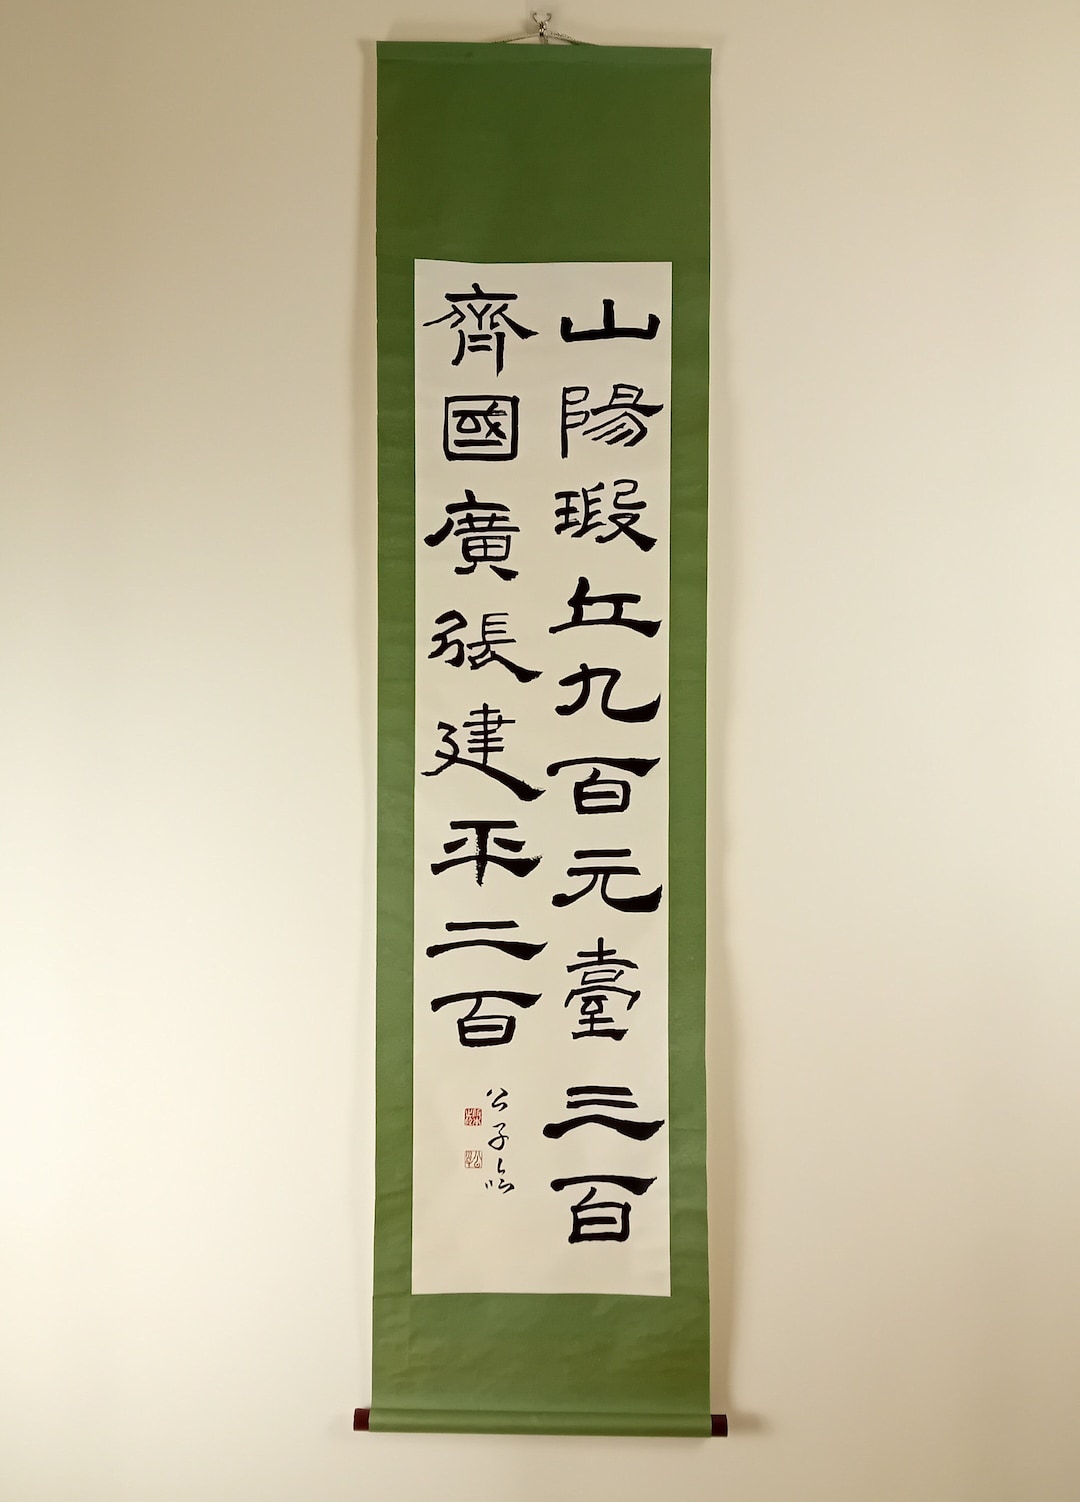 山陽瑕丘九百元臺三百
齊國廣張建平二百
公子臨